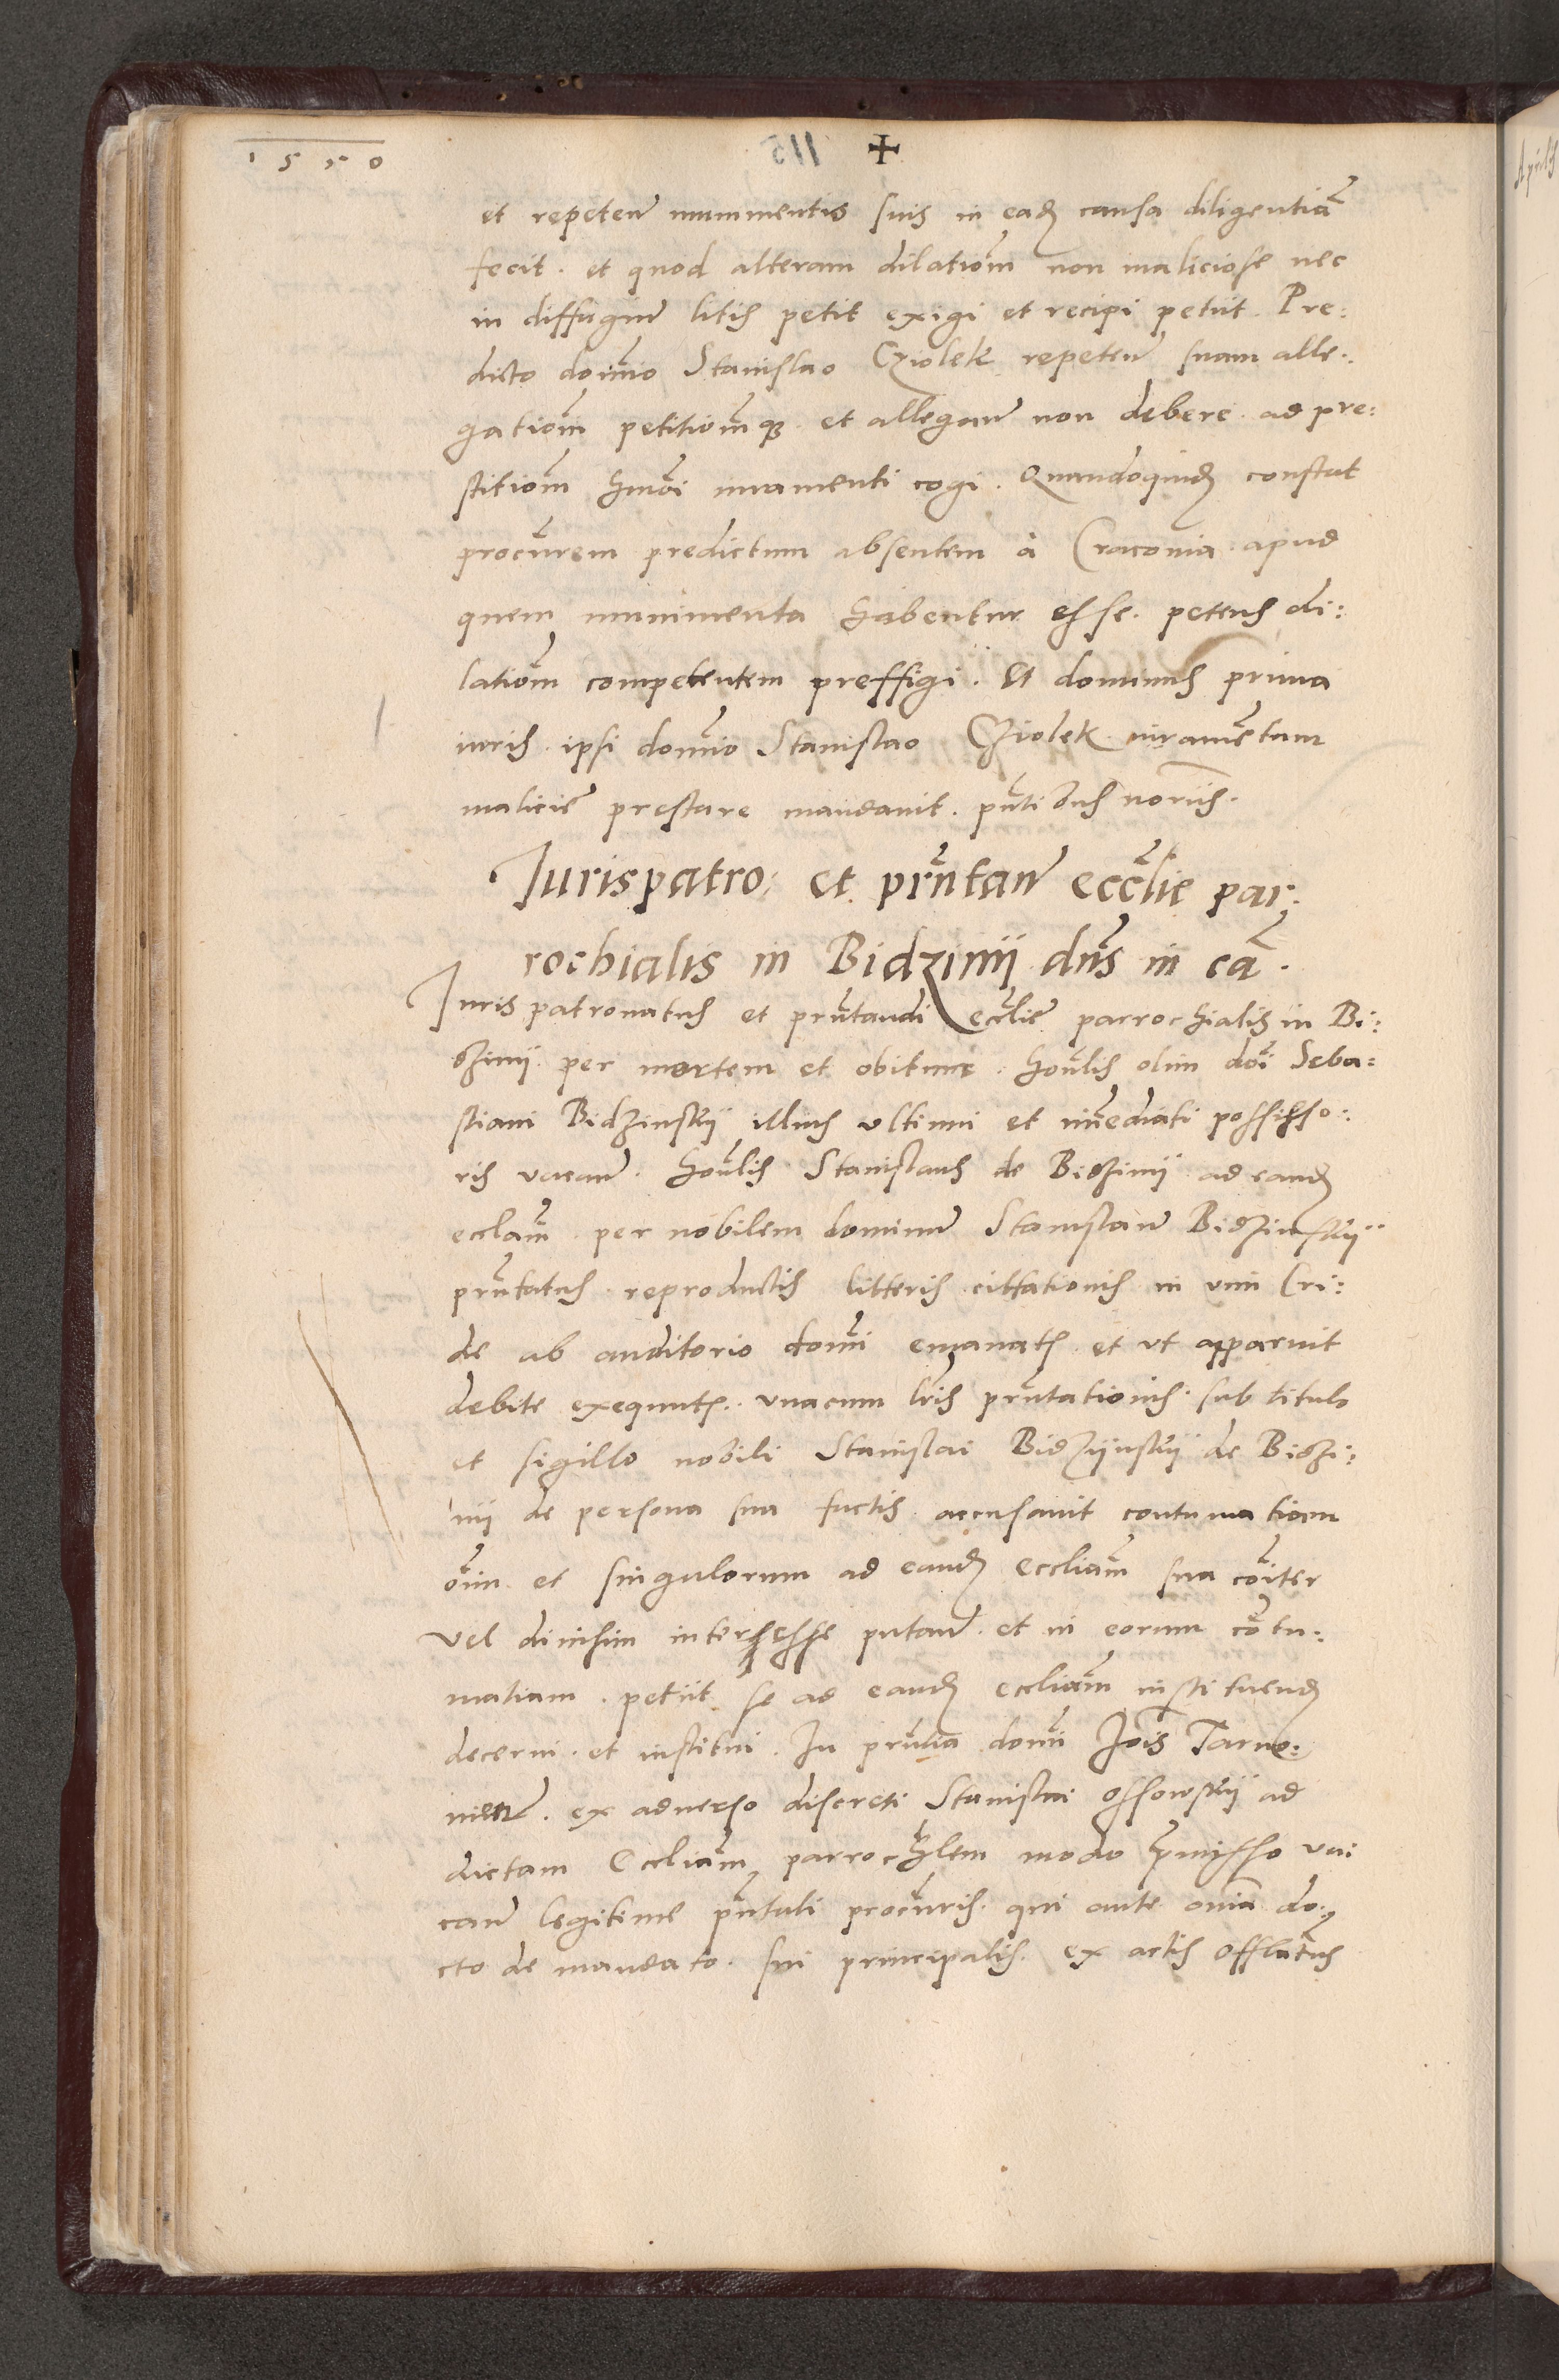 1550
115 +
et repeten̄ munimentis suis in eadē causa diligentiā
fecit. et quod alteram dilatiōm non maliciose nec
in diffugiū litis petit exigi et recipi petiit. Pre:
dicto domino Stanislao Cziolek repeten̄ suam alle:
gatiōm petitiōmq3 et allegan̄ non debere ad pre:
stitiōm hmōi iuramenti cogi. Quandoquidē constat
procūrem predictum absentem à Cracouia apud
quem munimenta habentur esse. petens di:
latiōm competentem preffigi. Et dominus prima
iuris ipsi domīo Stanislao Cziolek iuramētum
malicie prestare mandauit. pn̄tibus notariis.
Iurispatro: et prn̄tan̄ eccl̄ie par:
rochialis in Bidzinij dn̄s in cā.
Iuris patronatus et prn̄tandi eccl̄ie parrochialis in Bi:
dzinij per mortem et obitum honl̄is olim dōi Seba:
stiani Bidzinskij illius vltimi et im̄ediati possesso:
ris vacan̄. honl̄is Stanislaus de Bidzinij ad eandē
ecclām per nobilem dominū Stanislaū Bidzinskij
prn̄tatus reproductis litteris cittationis in vim Cri:
de ab auditorio domī emanatis et vt apparuit
debite exequutis. vnacum lr̄is prn̄tationis sub titulo
et sigillo nobili Stanislai Bidzijnskij de Bidzi:
nij de persona sua factis accusauit contumatiam
oīm et singulorum ad eandē eccliām sua cōiter
vel diuisim interesse putan̄ et in eorum cōtu:
matiam petiit se ad eandē eccliām instituendū
decerni et institui. In prn̄tia domī Jōis Tarno:
ex aduerso discreti Stanislai Ossowskij ad
dictam Eccliām parrochl̄em modo p̄misso va:
can̄ legitime pn̄tati procūris qui ante oīa do:
cto de mandato sui principalis ex actis offl̄atus